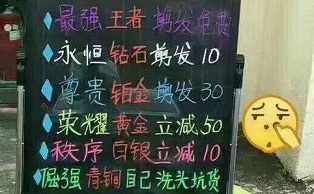 最强王者 剪发免费
永恒钻石剪发10
尊贵铂金剪发30
荣耀黄金立减50
秩序白银立减10
倔强青铜自己洗头坑货